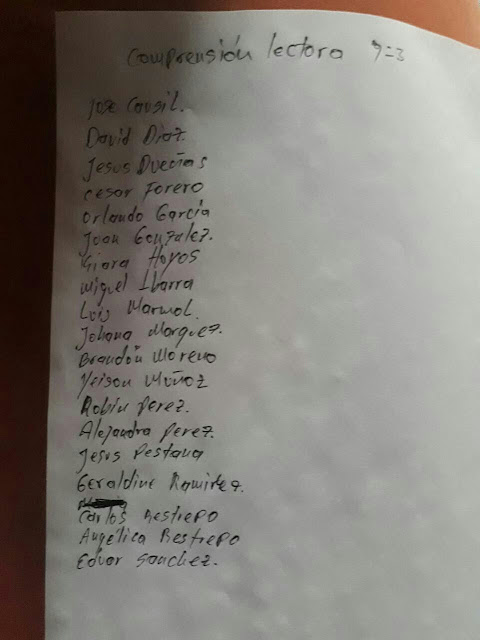 Comprensión lectora 9=3
Jose Causil.
David Diaz.
Jesus Dueñas
Cesar Forero
Orlando Garcia
Joan Gonzalez.
Giara Hoyos
Miguel Ibarra
Luis Marmol.
Johana Marquez.
Brandon Moreno
Yeison Muñoz
Robin perez.
Alejandra perez.
Jesus Pestana
Geraldine Ramirez.
Carlos Restrepo
Angelica Restrepo
Eduar Sanchez.